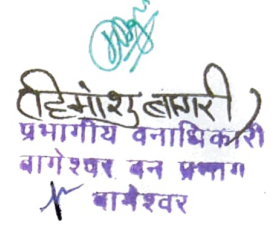 (हिमांशु बागरी)
प्रभागीय वनाधिकारी
बागेश्वर वन प्रभाग
बागेश्वर